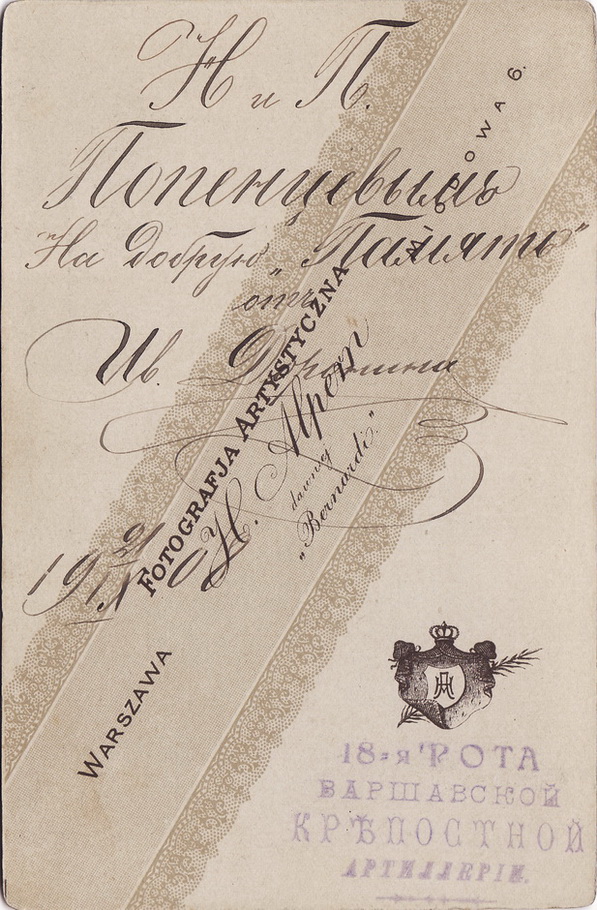 Н и П.
Попенцевымъ
На добрую „Память"
отъ
Ив.
19
Fotografja Artystyczna
H. Alpern
dawniej
„Bernardi".
Warszawa
6.
18=я РОТА
ВАРШАВСКОЙ
КРѢПОСТНОЙ
АРТИЛЛЕРІИ.